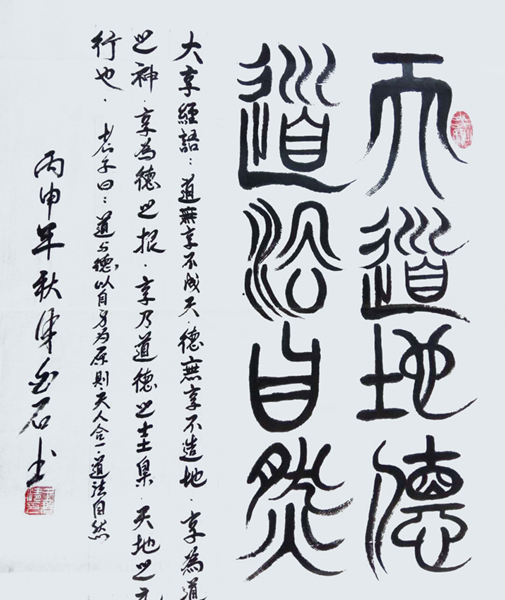 天道地德
道法自然
大享經語：道無享不成天．德無享不造地．享為道
之神．享為德之根．享乃道德之主集．天地之
行也．老子曰：道与德以自身为原則天人合一道法自然
丙申年秋 石书